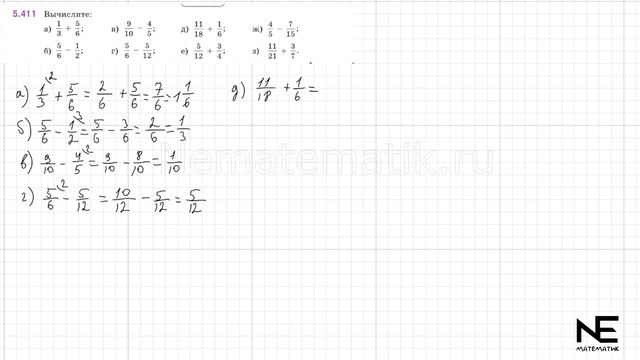 5.411 Вычислите:
а) 1/3 + 5/6; в) 9/10 − 4/5; д) 11/18 + 1/6; ж) 4/5 − 7/15;
б) 5/6 − 1/2; г) 5/6 − 5/12; е) 5/12 + 3/4; з) 11/21 + 3/7.
а) 1/3 ² + 5/6 = 2/6 + 5/6 = 7/6 = 1 1/6 д) 11/18 + 1/6 =
б) 5/6 − 1/2 ³ = 5/6 − 3/6 = 2/6 = 1/3
в) 9/10 − 4/5 ² = 9/10 − 8/10 = 1/10
г) 5/6 ² − 5/12 = 10/12 − 5/12 = 5/12
Nematematik.ru
NE
МАТЕМАТИК